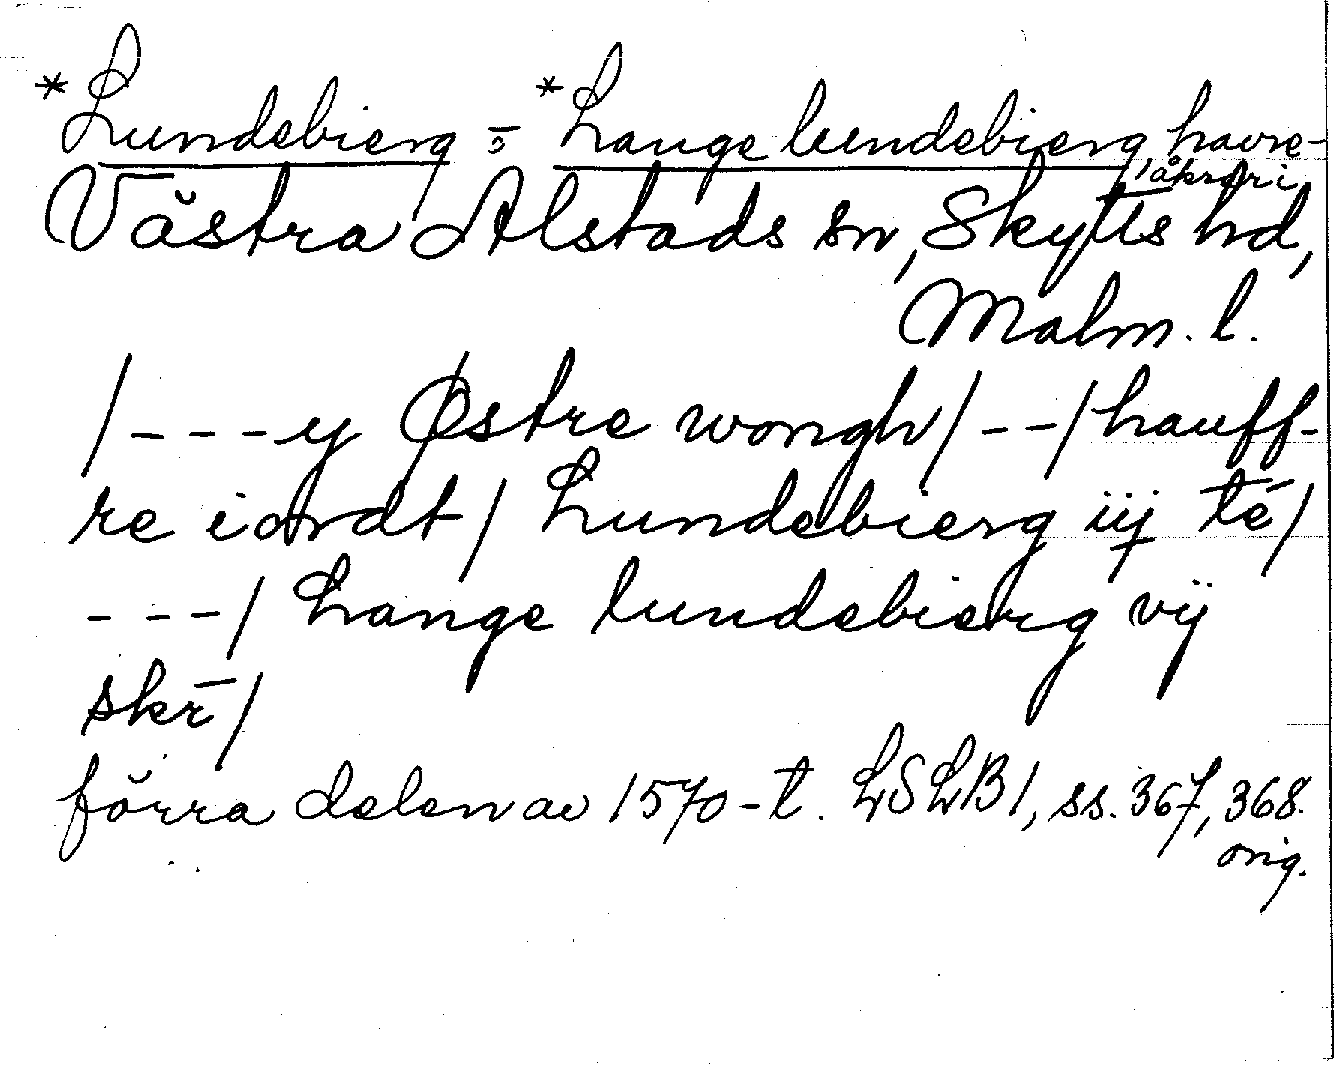 *Lundebierg = *Lange lundebierg havre-
åkrar i
Västra Alstads sn, Skytts hd,
Malm. l.
/---y Østre wongh/--/hauff-
re iordt/ Lundebierg iij te/
---/ Lange lundebierg vij
skr/
förra delen av 1570-t. LSLB1, ss. 367, 368.
orig.